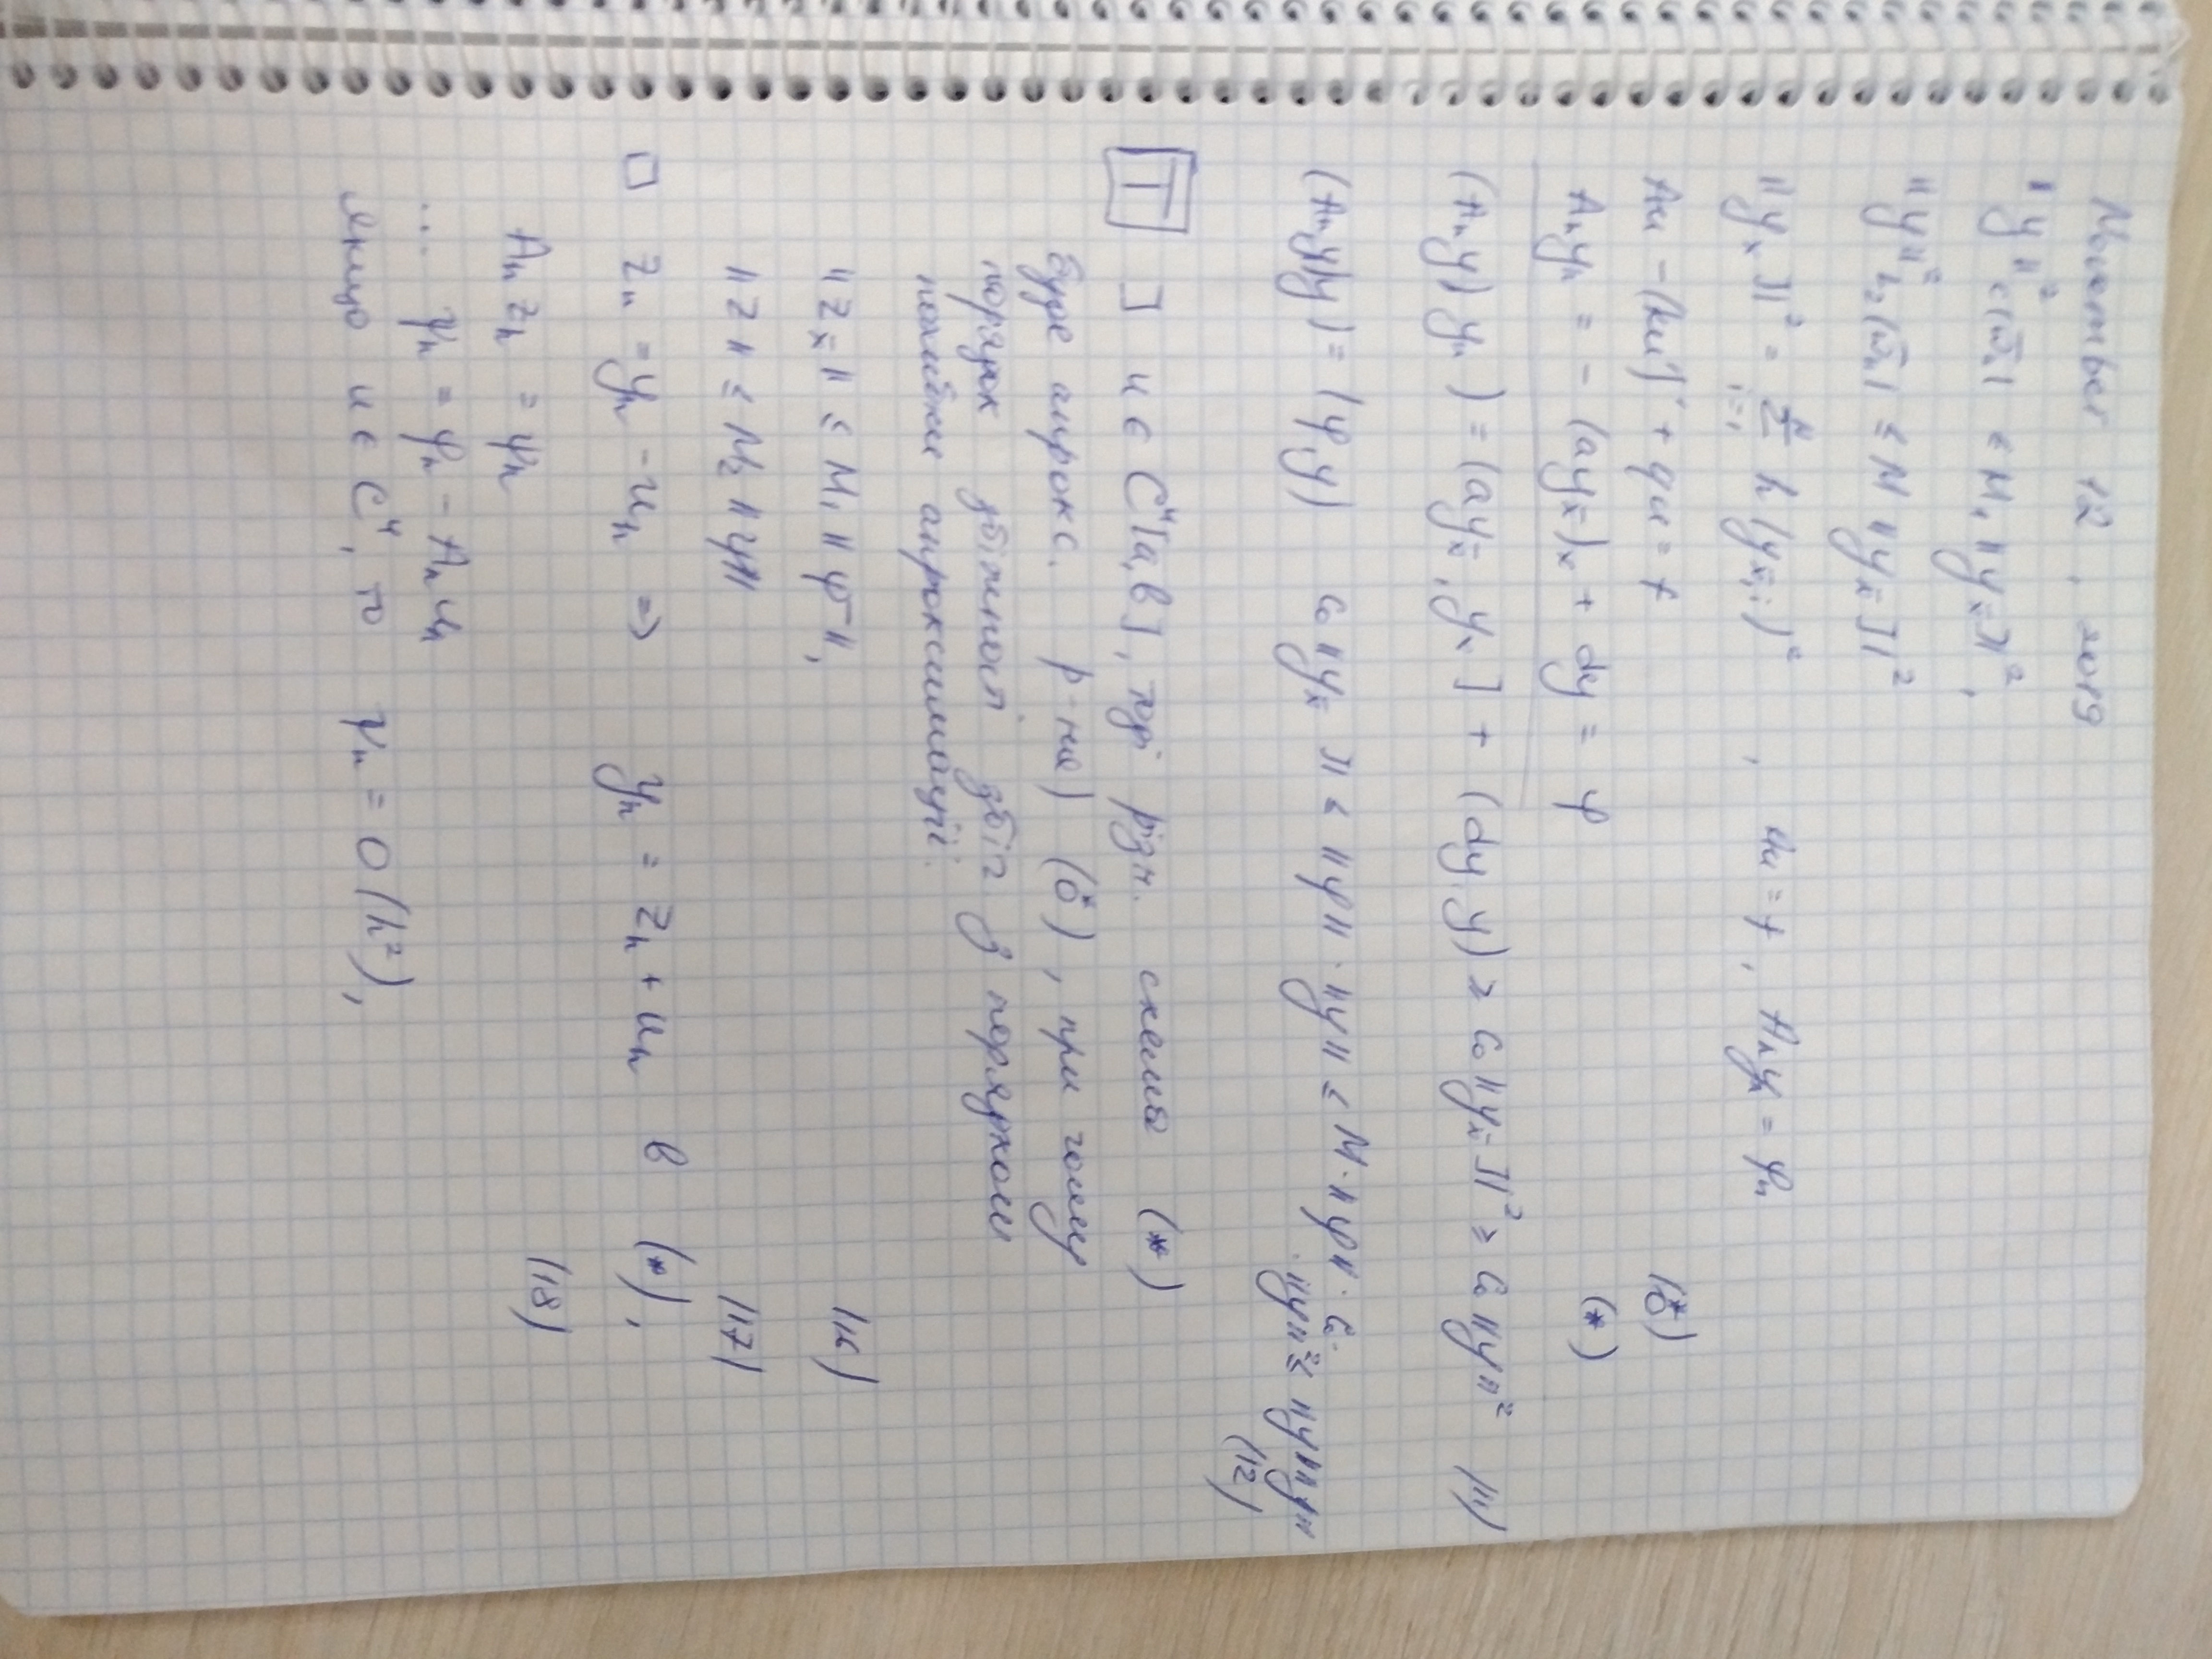 November 12, 2019
‖y‖²_C(ω̄ₕ) ≤ M₁ ‖yₓ̄]|²,
‖y‖²_L₂(ω̄ₕ) ≤ M ‖yₓ̄]|²
‖yₓ̄]|² = Σᵢ₌₁ᴺ h (yₓ̄,ᵢ)² , Au = f, Aₕyₕ = φₕ
Au = -(ku')' + qu = f (*̂0)
Aₕyₕ = -(ayₓ̄)ₓ + dy = φ (*)
(Aₕy, yₕ) = (ayₓ̄, yₓ̄] + (dy, y) ≥ C₀ ‖yₓ̄]|² ≥ C₁ ‖y‖² (11)
(Aₕy, y) = (φ, y) C₀ ‖yₓ̄]| ≤ ‖φ‖·‖y‖ ≤ M·‖φ‖· C₁·‖y‖² ≤ ‖φ‖‖y‖
(12)
T ] u ∈ C⁴[a,b], тоді різн. схема (*)
буде апрокс. р-ня (*̂0), при чому
порядок збіжності збіг з порядком
похибки апроксимації.
‖zₓ̄‖ ≤ M₁ ‖ψ‖, (16)
‖z‖ ≤ M₂ ‖ψ‖ (17)
□ zₕ = yₕ - uₕ ⇒ yₕ = zₕ + uₕ в (*),
Aₕzₕ = ψₕ (18)
... ψₕ = φₕ - Aₕuₕ
якщо u ∈ C⁴, то ψₕ = O(h²),